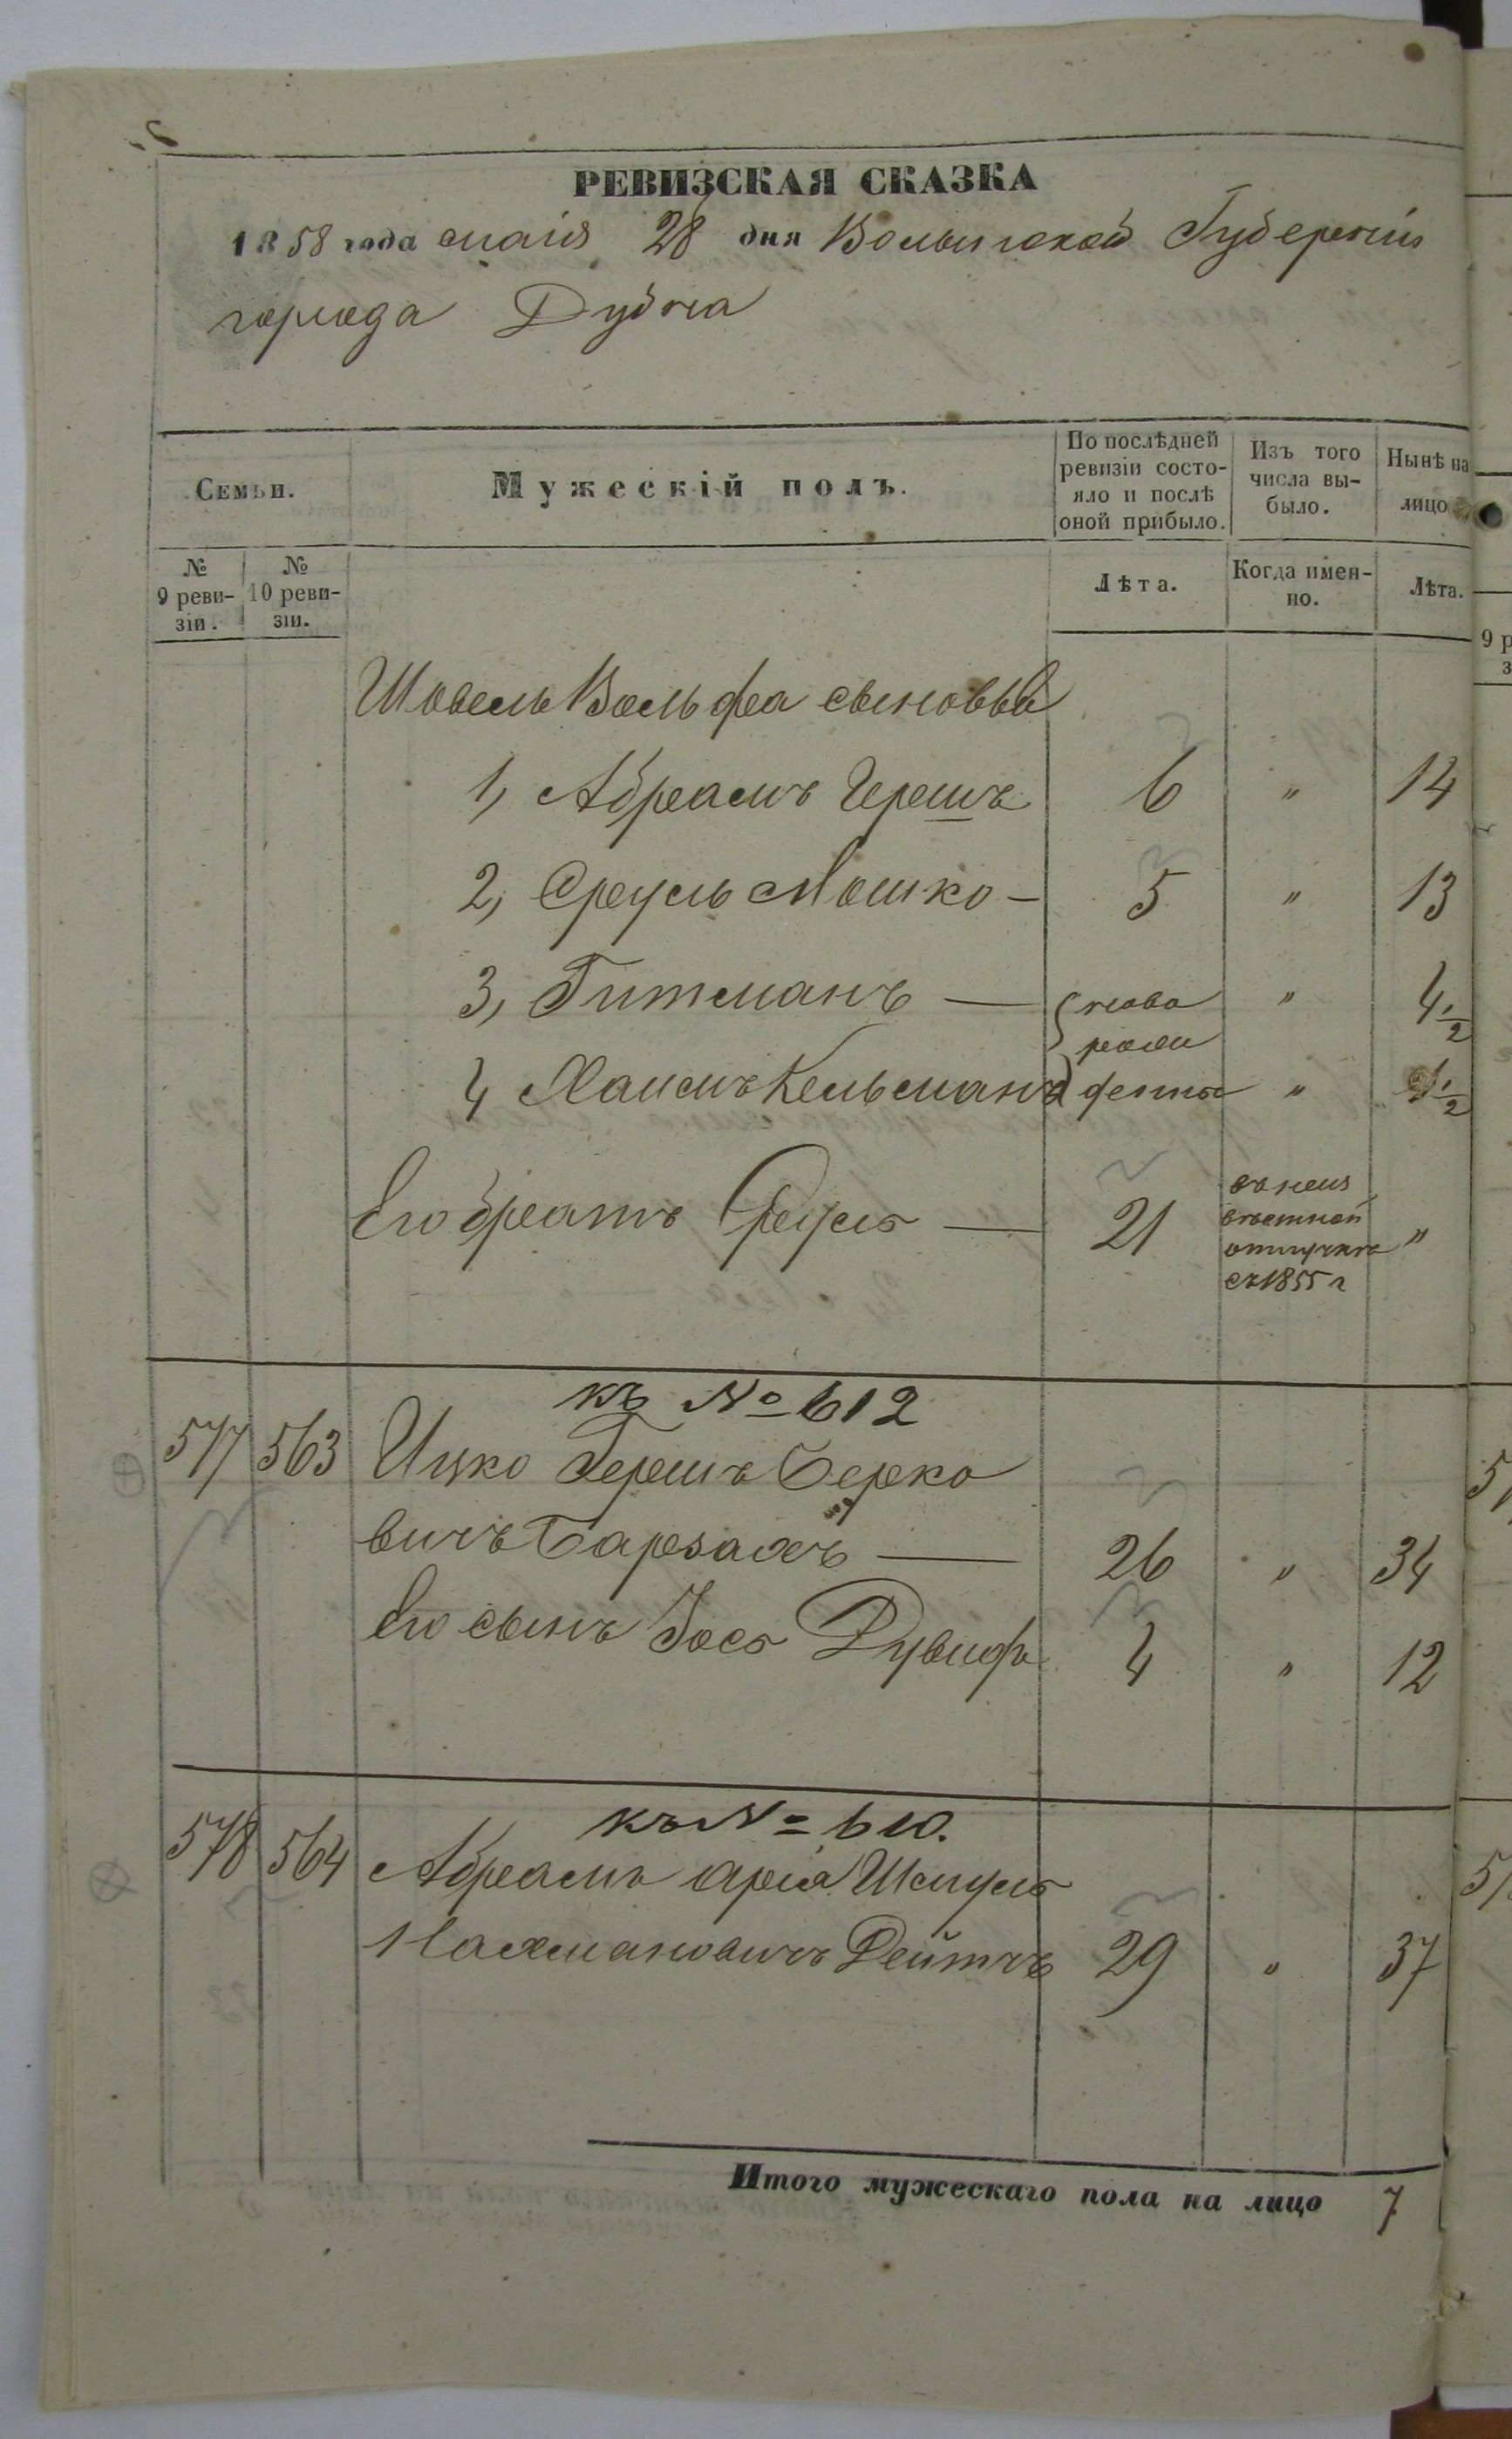 РЕВИЗСКАЯ СКАЗКА
1858 года маія 28 дня Волынской Губерніи
города Дубна
Семьи.
Мужескій полъ.
По послѣдней ревизіи состо-
яло и послѣ
оной прибыло.
Изъ того
числа вы-
было.
Нынѣ на
лицо
№
9 реви-
зіи.
№
10 реви-
зіи.
Лѣта.
Когда имен-
но.
Лѣта.
Шовель Вольфа сыновья
1, Абрамъ Гершъ 6 " 14
2, Сруль Мошко — 5 " 13
3, Гитманъ — ново " 4 1/2
рож
4 Хаимъ Кельманъ денны " 1/2
Его братъ Сруль — 21 въ неиз
вѣстной
отлучкѣ "
съ 1855 г
къ № 612
577 563 Ицко Гершъ Берко
вичъ Барзахъ — 26 " 34
Его сынъ Іось Рувинъ 4 " 12
къ № 610.
578 564 Абрамъ Арія Шмуль
Нахмановичъ Дейтчъ 29 " 37
Итого мужескаго пола на лицо 7